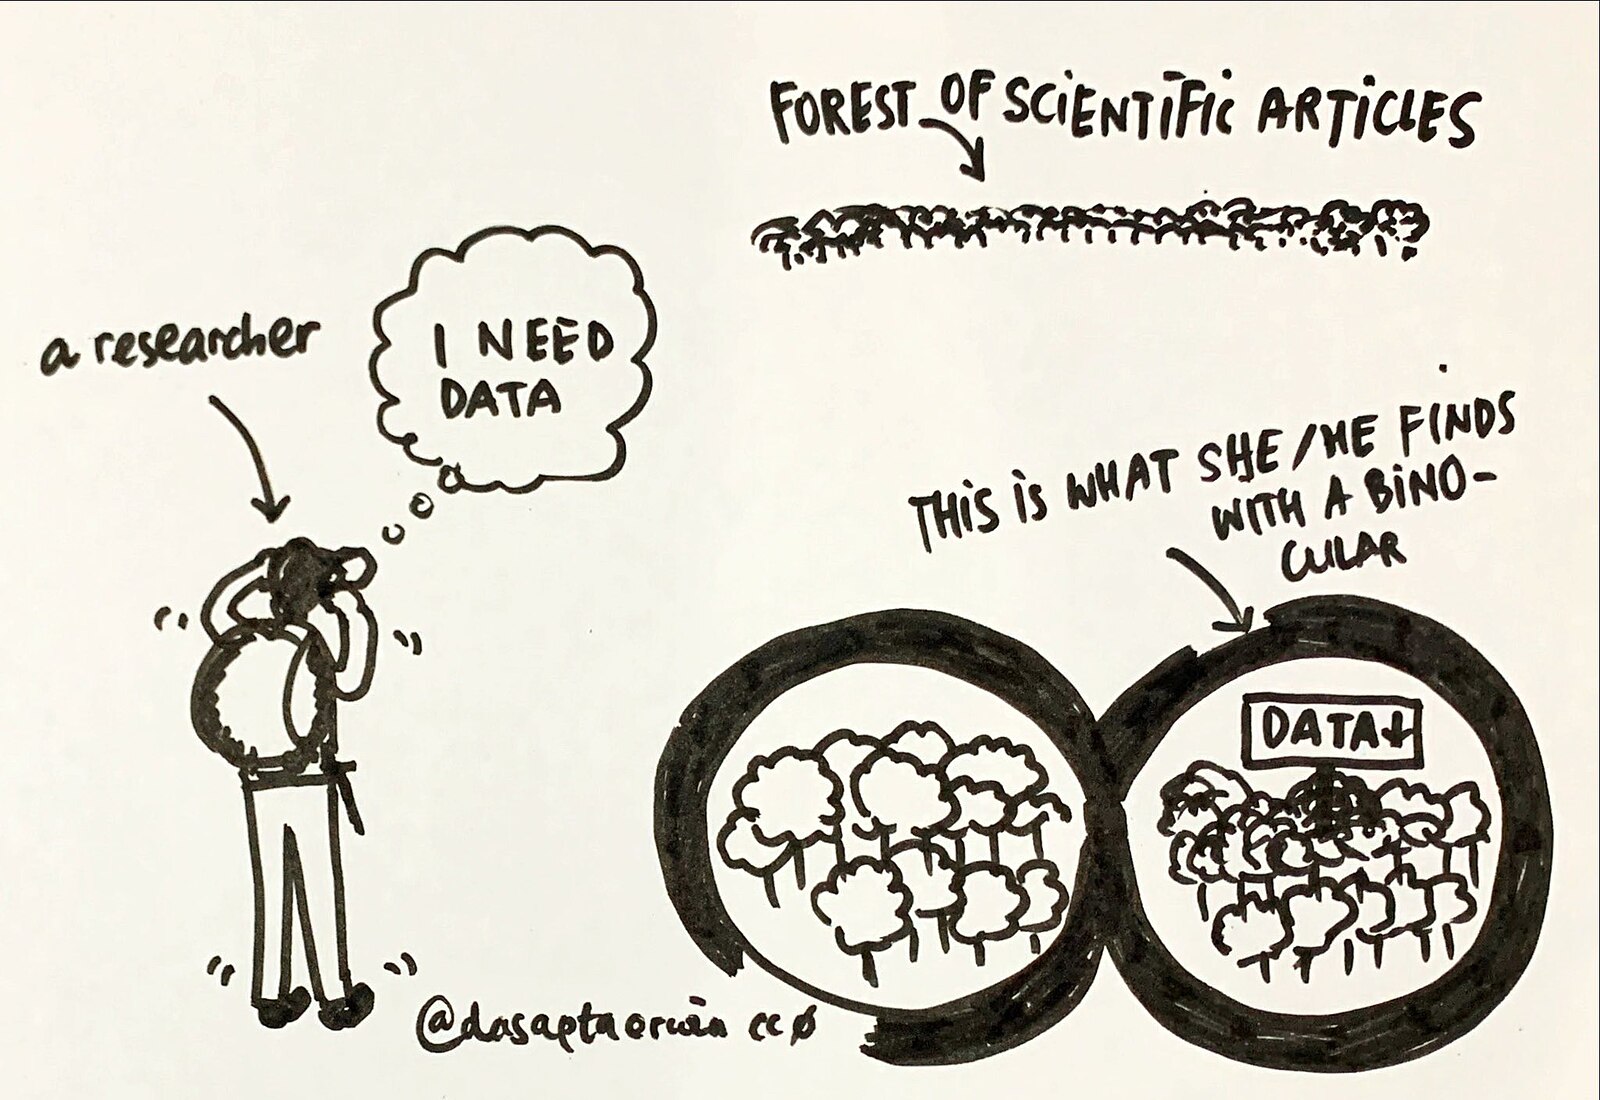 FOREST OF SCIENTIFIC ARTICLES
a researcher
I NEED
DATA
THIS IS WHAT SHE/HE FINDS
WITH A BINO-
CULAR
DATA+
@dasaptaerwin cc0